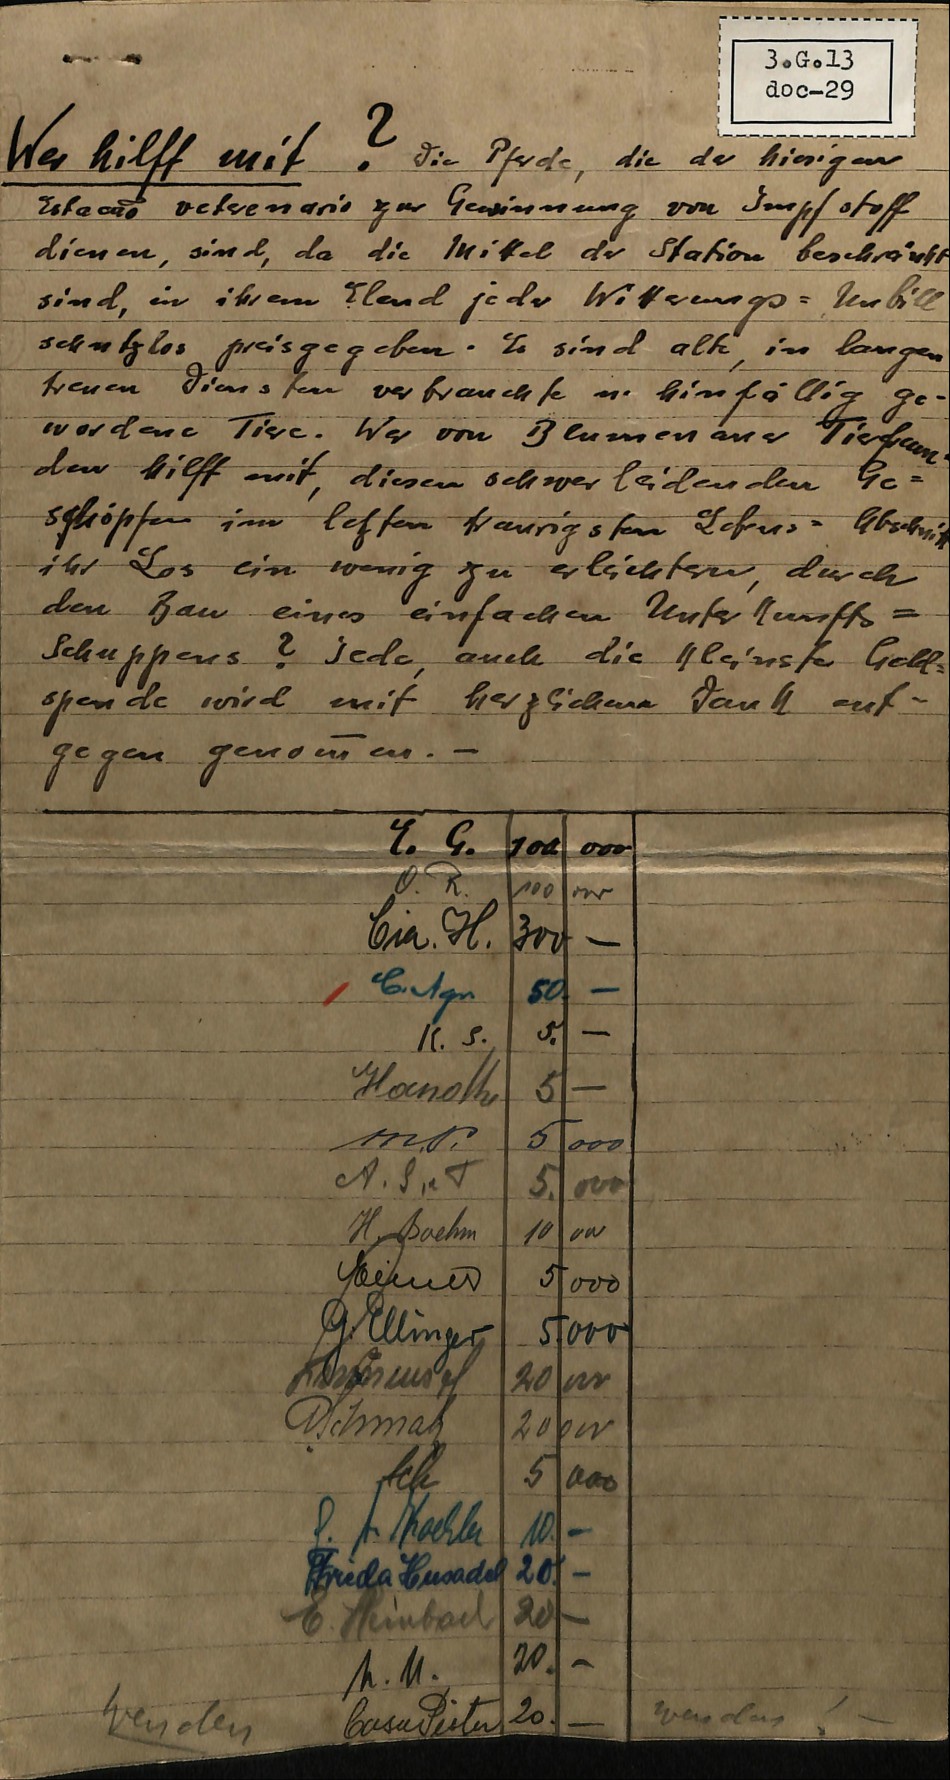 3.G.13
doc-29
Wer hilft mit ? Die Pferde, die der hiesigen
Estacaõ veterenario zur Gewinnung von Impfstoff
dienen, sind, da die Mittel der Station beschränkt
sind, in ihrem Elend jeder Witterungs= Unbill
schutzlos preisgegeben. Es sind alte, in langen
treuen Diensten verbrauchte u. hinfällig ge-
wordene Tiere. Wer von Blumenauer Tierfreun-
den hilft mit, diesen schwer leidenden Ge=
schöpfen im letzten traurigsten Lebens= Abschnitt
ihr Los ein wenig zu erleichtern, durch
den Bau eines einfachen Unterkunfts=
Schuppens ? Jede, auch die kleinste Geld=
spende wird mit herzlichem Dank ent-
gegen genom̄en. —
E. G. 100 000
O. R. 100 000
Cia. H. 300 —
50. —
K. S. 5. —
5 —
M.P. 5 000
5. 000
H. Boehm 10 00
5 000
G. Ellinger 5.000
20 000
20 000
5 000
Koehler 10. —
Frida Husadel 20. —
E. Heinbach 20 —
20. —
Casa Peiter 20. —
wenden
wenden ! —